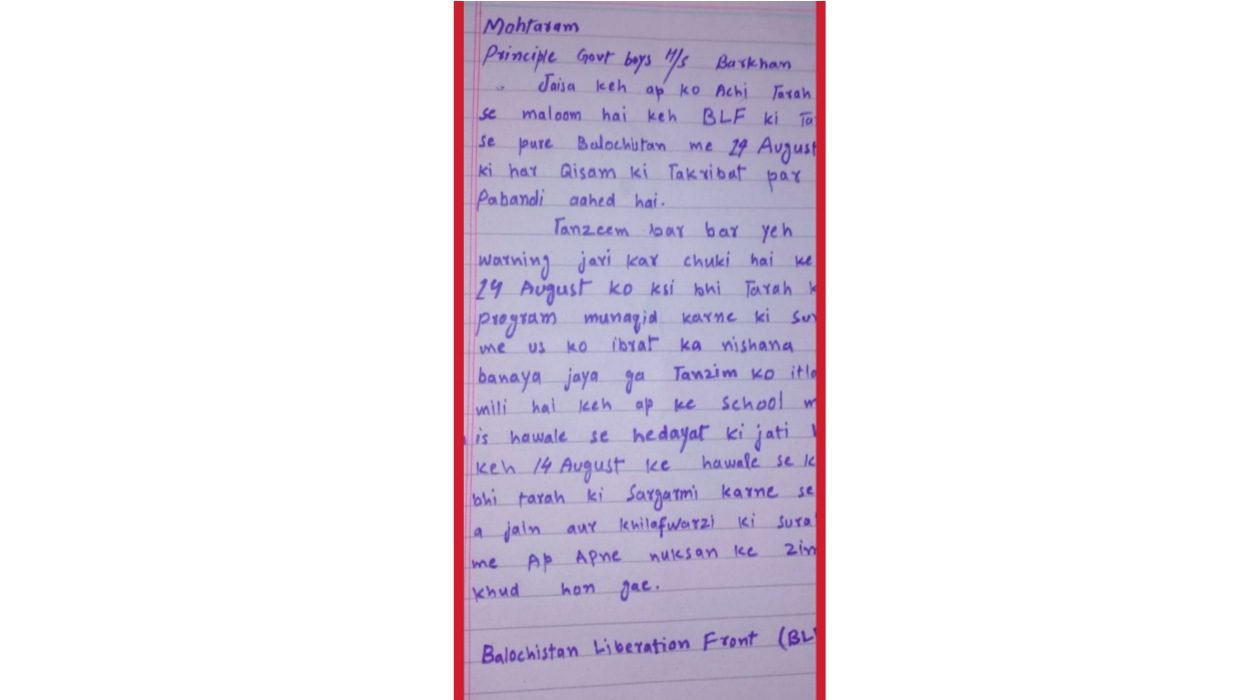 Mohtaram
Principle Govt boys H/S Barkhan
Jaisa keh ap ko Achi Tarah
se maloom hai keh BLF ki Ta
se pure Balochistan me 14 August
ki har Qisam ki Takribat par
Pabandi aahed hai.
Tanzeem bar bar yeh
warning jari kar chuki hai ke
14 August ko ksi bhi Tarah k
program munaqid karne ki sur
me us ko ibrat ka nishana
banaya jaya ga Tanzim ko itla
mili hai keh ap ke school m
is hawale se hedayat ki jati
keh 14 August ke hawale se k
bhi tarah ki Sargarmi karne se
a jain aur khilafwarzi ki sura
me Ap Apne nuksan ke zim
khud hon gae.
Balochistan Liberation Front (BL